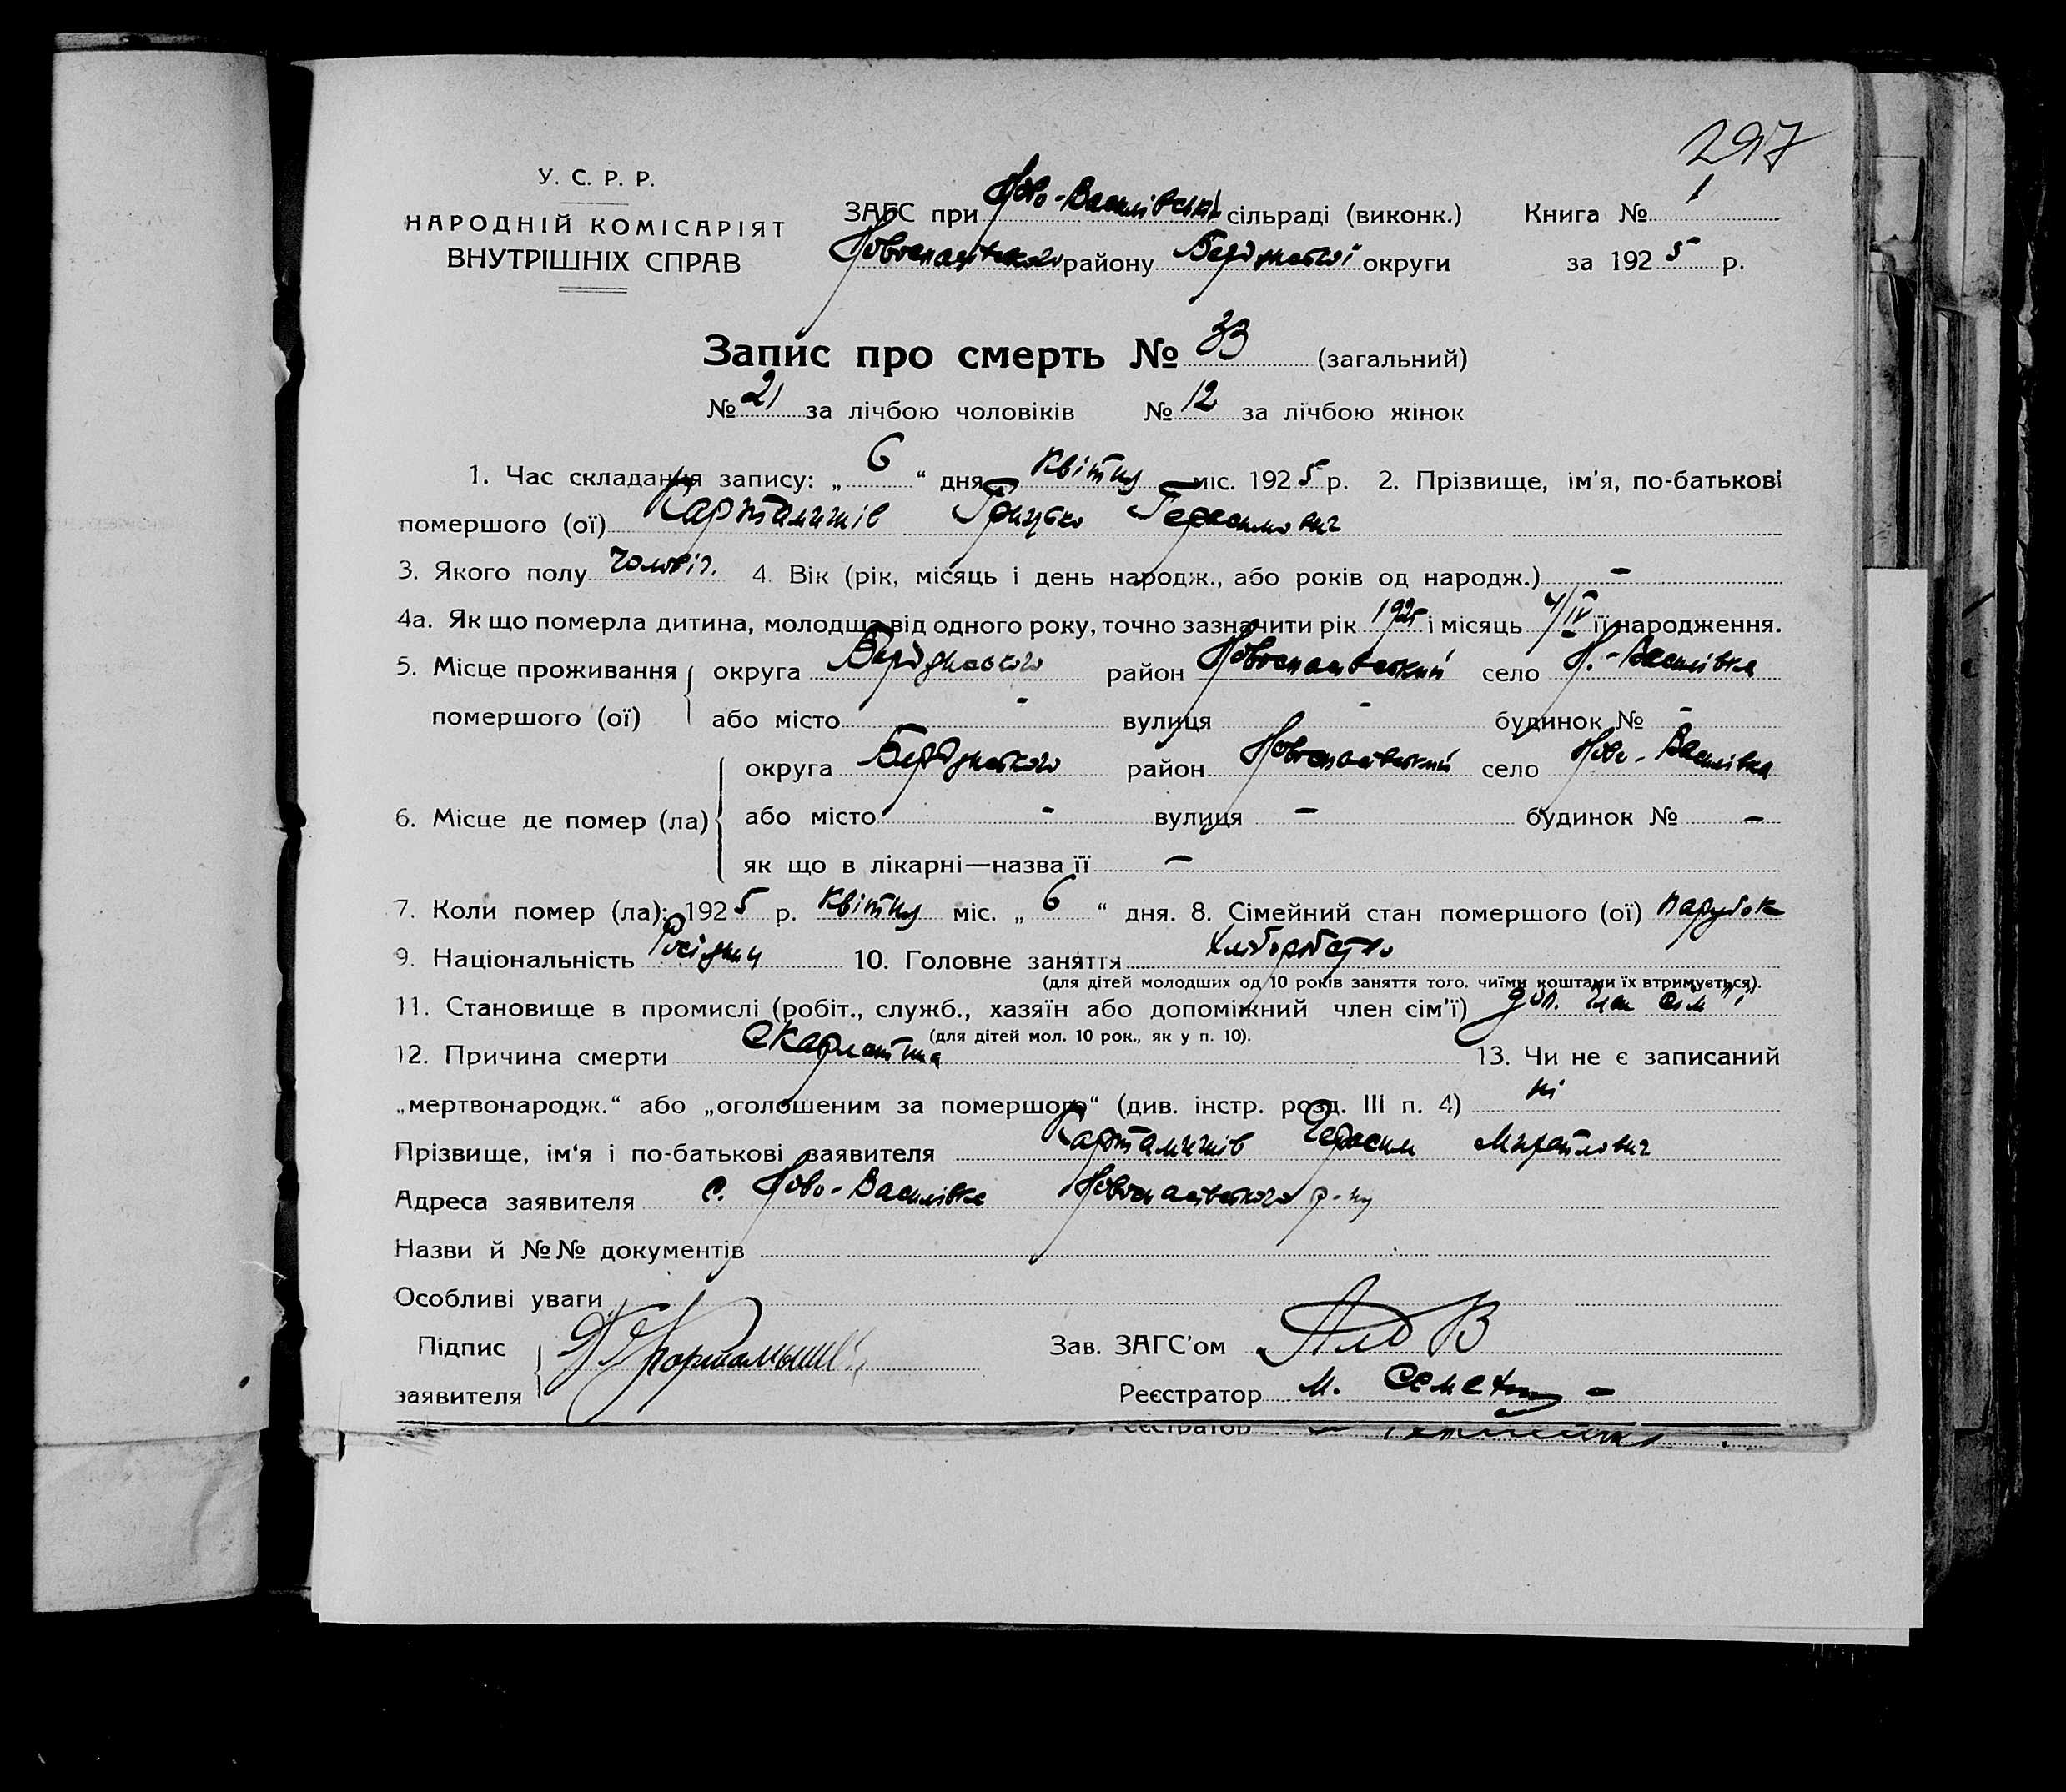 297
У. С. Р. Р.
НАРОДНІЙ КОМІСАРІЯТ
ВНУТРІШНІХ СПРАВ
ЗАГС при Ново-Василівській сільраді (виконк.) Книга № 1
Новоспасівського району Бердянської округи за 1925 р.
Запис про смерть № 33 (загальний)
№ 21 за лічбою чоловіків № 12 за лічбою жінок
1. Час складання запису: „ 6 “ дня квітня міс. 1925 р. 2. Прізвище, ім’я, по-батькові
помершого (ої) Карталишів Грицько Герасимович
3. Якого полу чоловіч. 4. Вік (рік, місяць і день народж., або років од народж.) –
4а. Як що померла дитина, молодша від одного року, точно зазначити рік 1925 і місяць 4/IV її народження.
5. Місце проживання округа Бердянського район Новоспасівський село Н.-Василівка
помершого (ої) або місто - вулиця - будинок № -
округа Бердянського район Новоспасівський село Ново-Василівка
6. Місце де помер (ла) або місто - вулиця – будинок № –
як що в лікарні—назва її –
7. Коли помер (ла): 1925 р. квітня міс. „ 6 “ дня. 8. Сімейний стан помершого (ої) парубок
9. Національність Росіянин 10. Головне заняття хліборобство
(для дітей молодших од 10 років заняття того, чиїми коштами їх втримується).
11. Становище в промислі (робіт., служб., хазяїн або допоміжний член сім’ї) доп. член сім"ї
(для дітей мол. 10 рок., як у п. 10).
12. Причина смерти скарлатина 13. Чи не є записаний
„мертвонародж.“ або „оголошеним за помершого“ (див. інстр. розд. III п. 4) ні
Прізвище, ім‘я і по-батькові заявителя Карталишів Герасим Михайлович
Адреса заявителя с. Ново-Василівка Новоспасівського р-ну
Назви й №№ документів
Особливі уваги
Підпис
заявителя
Зав. ЗАГС’ом
Реєстратор М.
Реєстратор